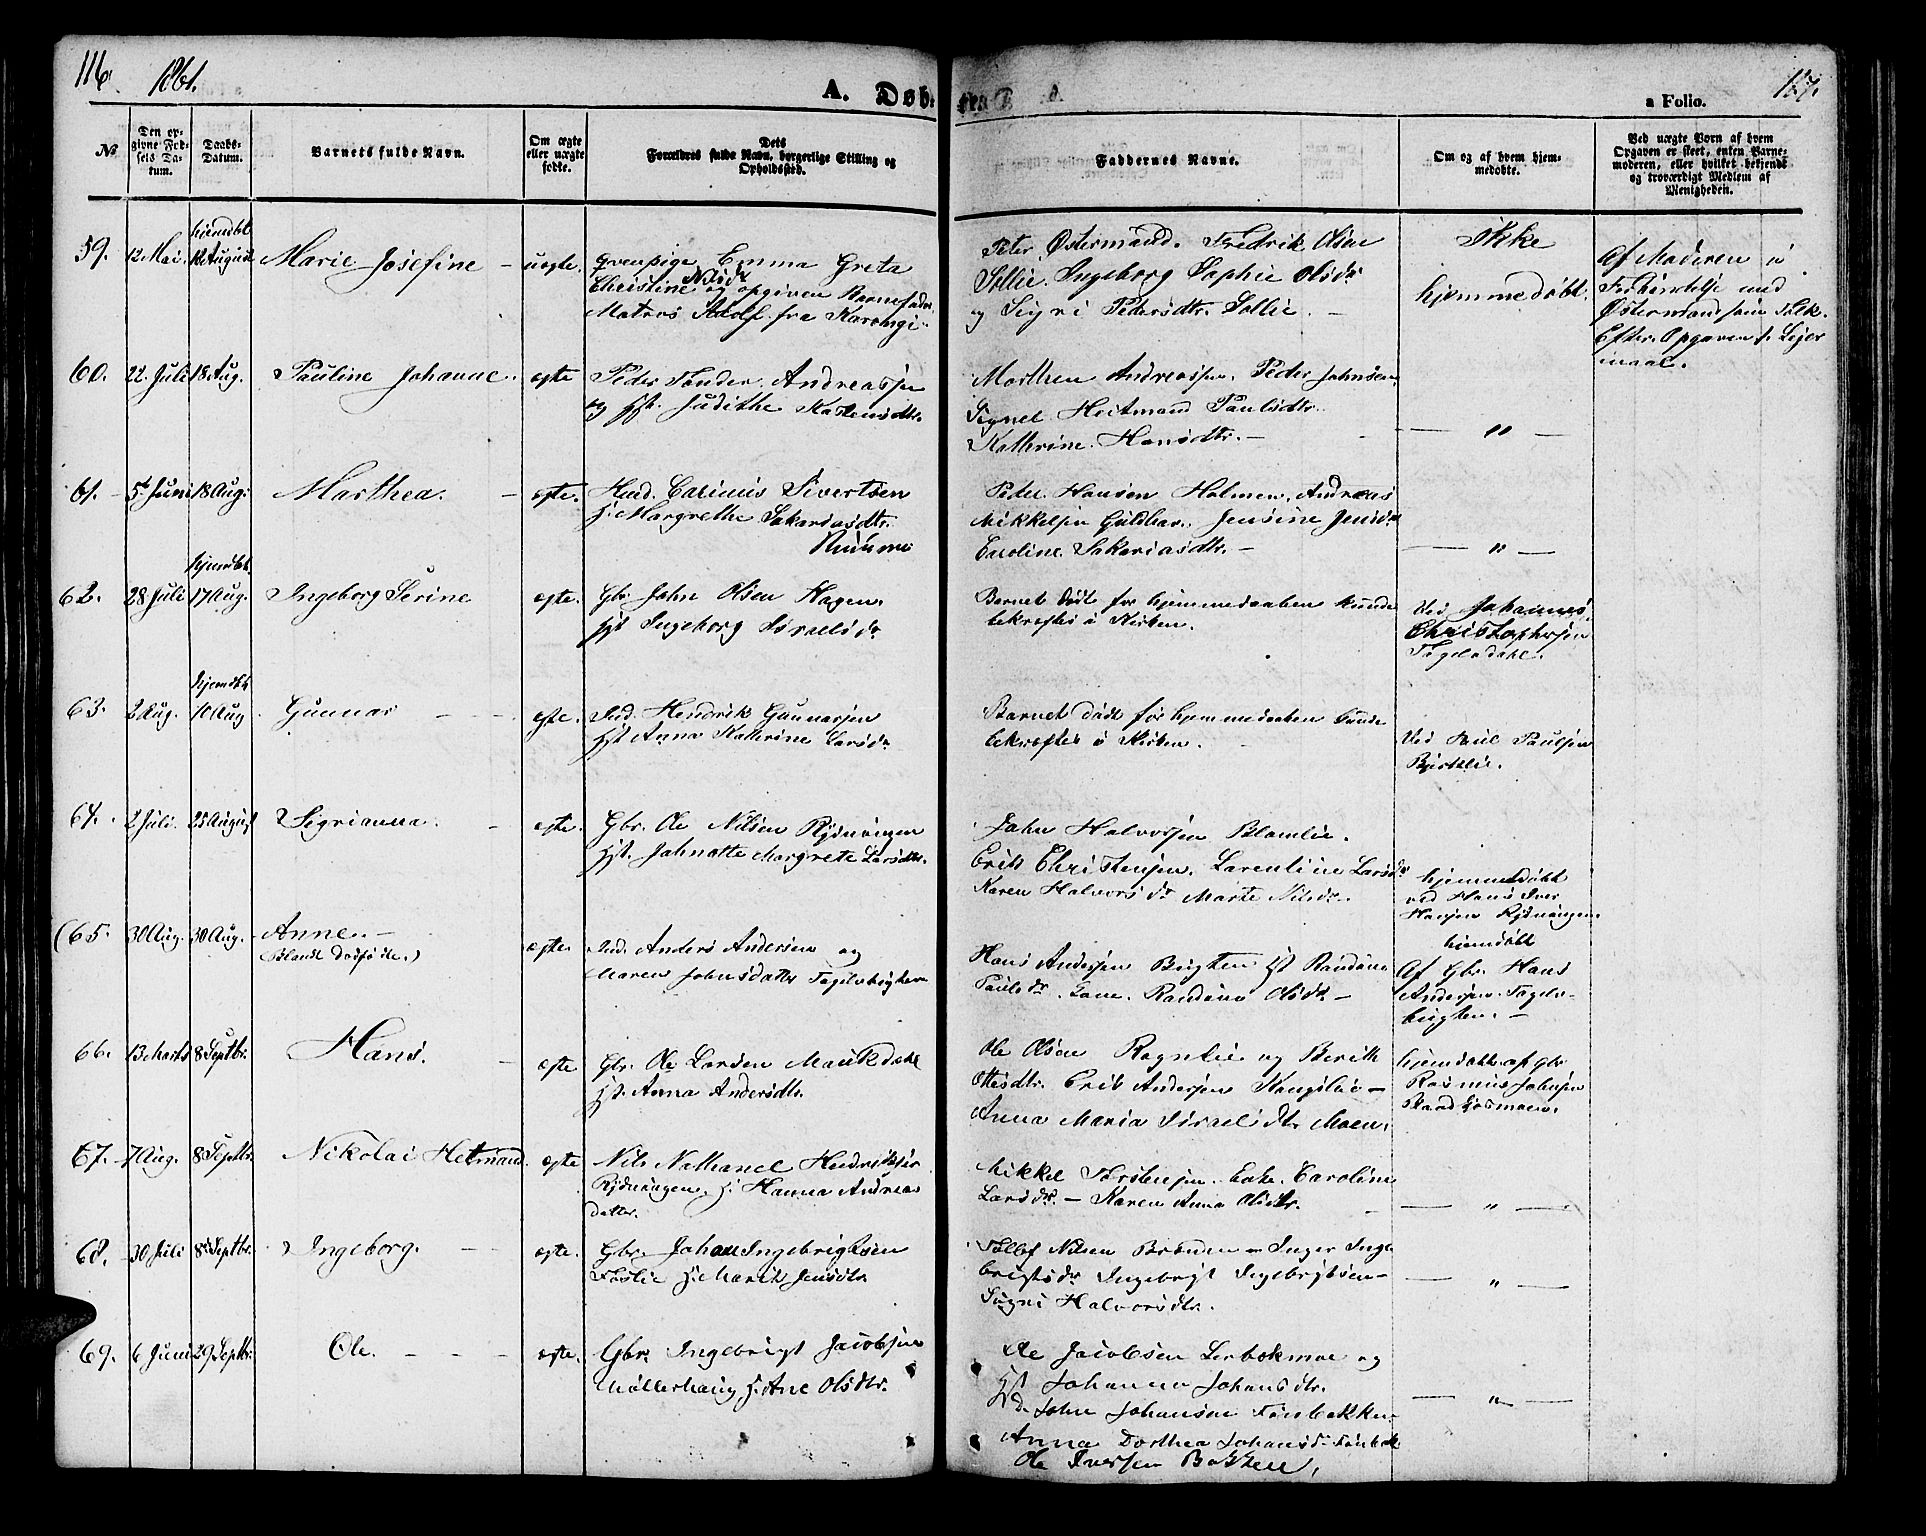 116. 1861.
A. Døb
a Folio.
117.
No
Den opgivne Fødsels Datum.
Daabs-Datum.
Barnets fulde Navn.
Om ægte eller uægte fødte.
Dets Forældres fulde Navn, borgerlige Stilling og Opholdssted.
Faddernes Navne.
Om og af hvem hjemmedøbte.
Ved uægte Børn af hvem Opgaven er skeet, enten Barnemoderen, eller hvilket bekjendt og troværdigt Medlem af Menigheden.
59. 12 Mai. August Marie Josefine uægte. Qvenpige Emma Greta
Christine Nilsdr og opgiven Barnefader
Matros Adolf fra Karungi
Peter Østermand. Fredrik Olsen
Sollie. Ingeborg Sophie Olsdr
og Sigri Pedersdtr. Sollie.
Ikke
hjemmedøbt.
Af Moderen i
Forbindelse med
Østermand som Tolk.
Efter Opgaven 1. Leiermaal.
60. 22. Juli 18 Aug. Pauline Johanne. ægte Peder Tønder Andreassen
og Hst. Judithe Karlensdtr.
Morthen Andreassen. Peder Johnsen
Signel Heitmand Paulsdtr.
Kathrine Hansdtr. —
— " —
61. 5t Juni 18 Aug. Marthea. ægte. Huusd. Carinius Sivertsen
H. Margrethe Sakariasdtr.
Peder Hansen Holmen. Andreas
Mikkelsen Guldhav. Jensine Jensdr
Caroline Sakariasdtr. —
— " —
hjemdbt.
62. 28 Juli 17 Aug. Ingeborg Serine ægte. Gbr. John Olsen Hagen.
Hst Ingeborg Israelsdr
Barnet dødt før hjemmedaaben kunde
bekræftes i Kirken.
Ved Johannes
Christophersen
Fagelidahl.
hjemdbt
63. 2 Aug. 10 Aug Gunnar — ægte. Ind. Hendrik Gunnarsen
Hst. Anna Kathrine Larsdr
Barnet dødt før hjemmedaaben kunde
bekræftes i Kirken.
Ved Paul Paulsen
Bjerklie.
64. 2 Juli. 25 August Sigrianna. ægte. Gbr. Ole Nilsen Rydningen
Hst. Johnette Margrete Larsdtr.
John Halvorsen Blomlie.
Erik Christensen. Larentine Larsdr
Karen Halvorsdr Marte Nilsdr.
hjemmedøbt
ved Hans Iver
Hansen Rydningen
65. 30 Aug. 30 Aug. Anne. —
(Blandt dødfødte.)
ægte. Ind. Anders Andersen og
Maren Johnsdatter Fagelibugten
Hans Andersen Bugten Hst Randine
Paulsdr. Lane. Randine Olsdr —
hjemdøbt
Af Gbr. Hans
Andersen Fagelibugten. —
66. 13 Marts 8 Septbr. Hans. — ægte Gbr. Ole Larsen Maukdahl
Hst. Anna Andersdtr.
Ole Olsen Rognlie og Berith
Ottesdtr. Erik Andersen Kongslie —
Anna Maria Israelsdtr Moen.
hjemdøbt af Gbr
Rasmus Johnsen
67. 7 Aug. 8 Septbr. Nikolai Hetmand ægte Nils Nathanel Hendriksen
Rydningen. H. Hanna Andreadatter.
Mikkel Torstensen. Enke. Caroline
Larsdtr. — Karen Anna Olsdtr.
— " —
68. 30 Juli 8 Septbr. Ingeborg. — ægte. Gbr. Johan Ingebrigtsen
Foslie H. Marit Jensdtr
Tollef Nilsen Branden — Inger Ingebrigtsdr
Ingebrigt Ingebrigtsen —
Sigri Halvorsdtr.
— " —
69. 6 Juni 29 Septbr. Ole. — ægte. Gbr. Ingebrigt Jacobsen
Møllerhaug H. Ane Olsdtr.
Ole Jacobsen Lerbekmoe og
Hst Johanna Johansdtr.
John Johansen Fonbakken
Anna Dorthea Johansdr Fonbak
Ole Iversen Bakken,
— " —